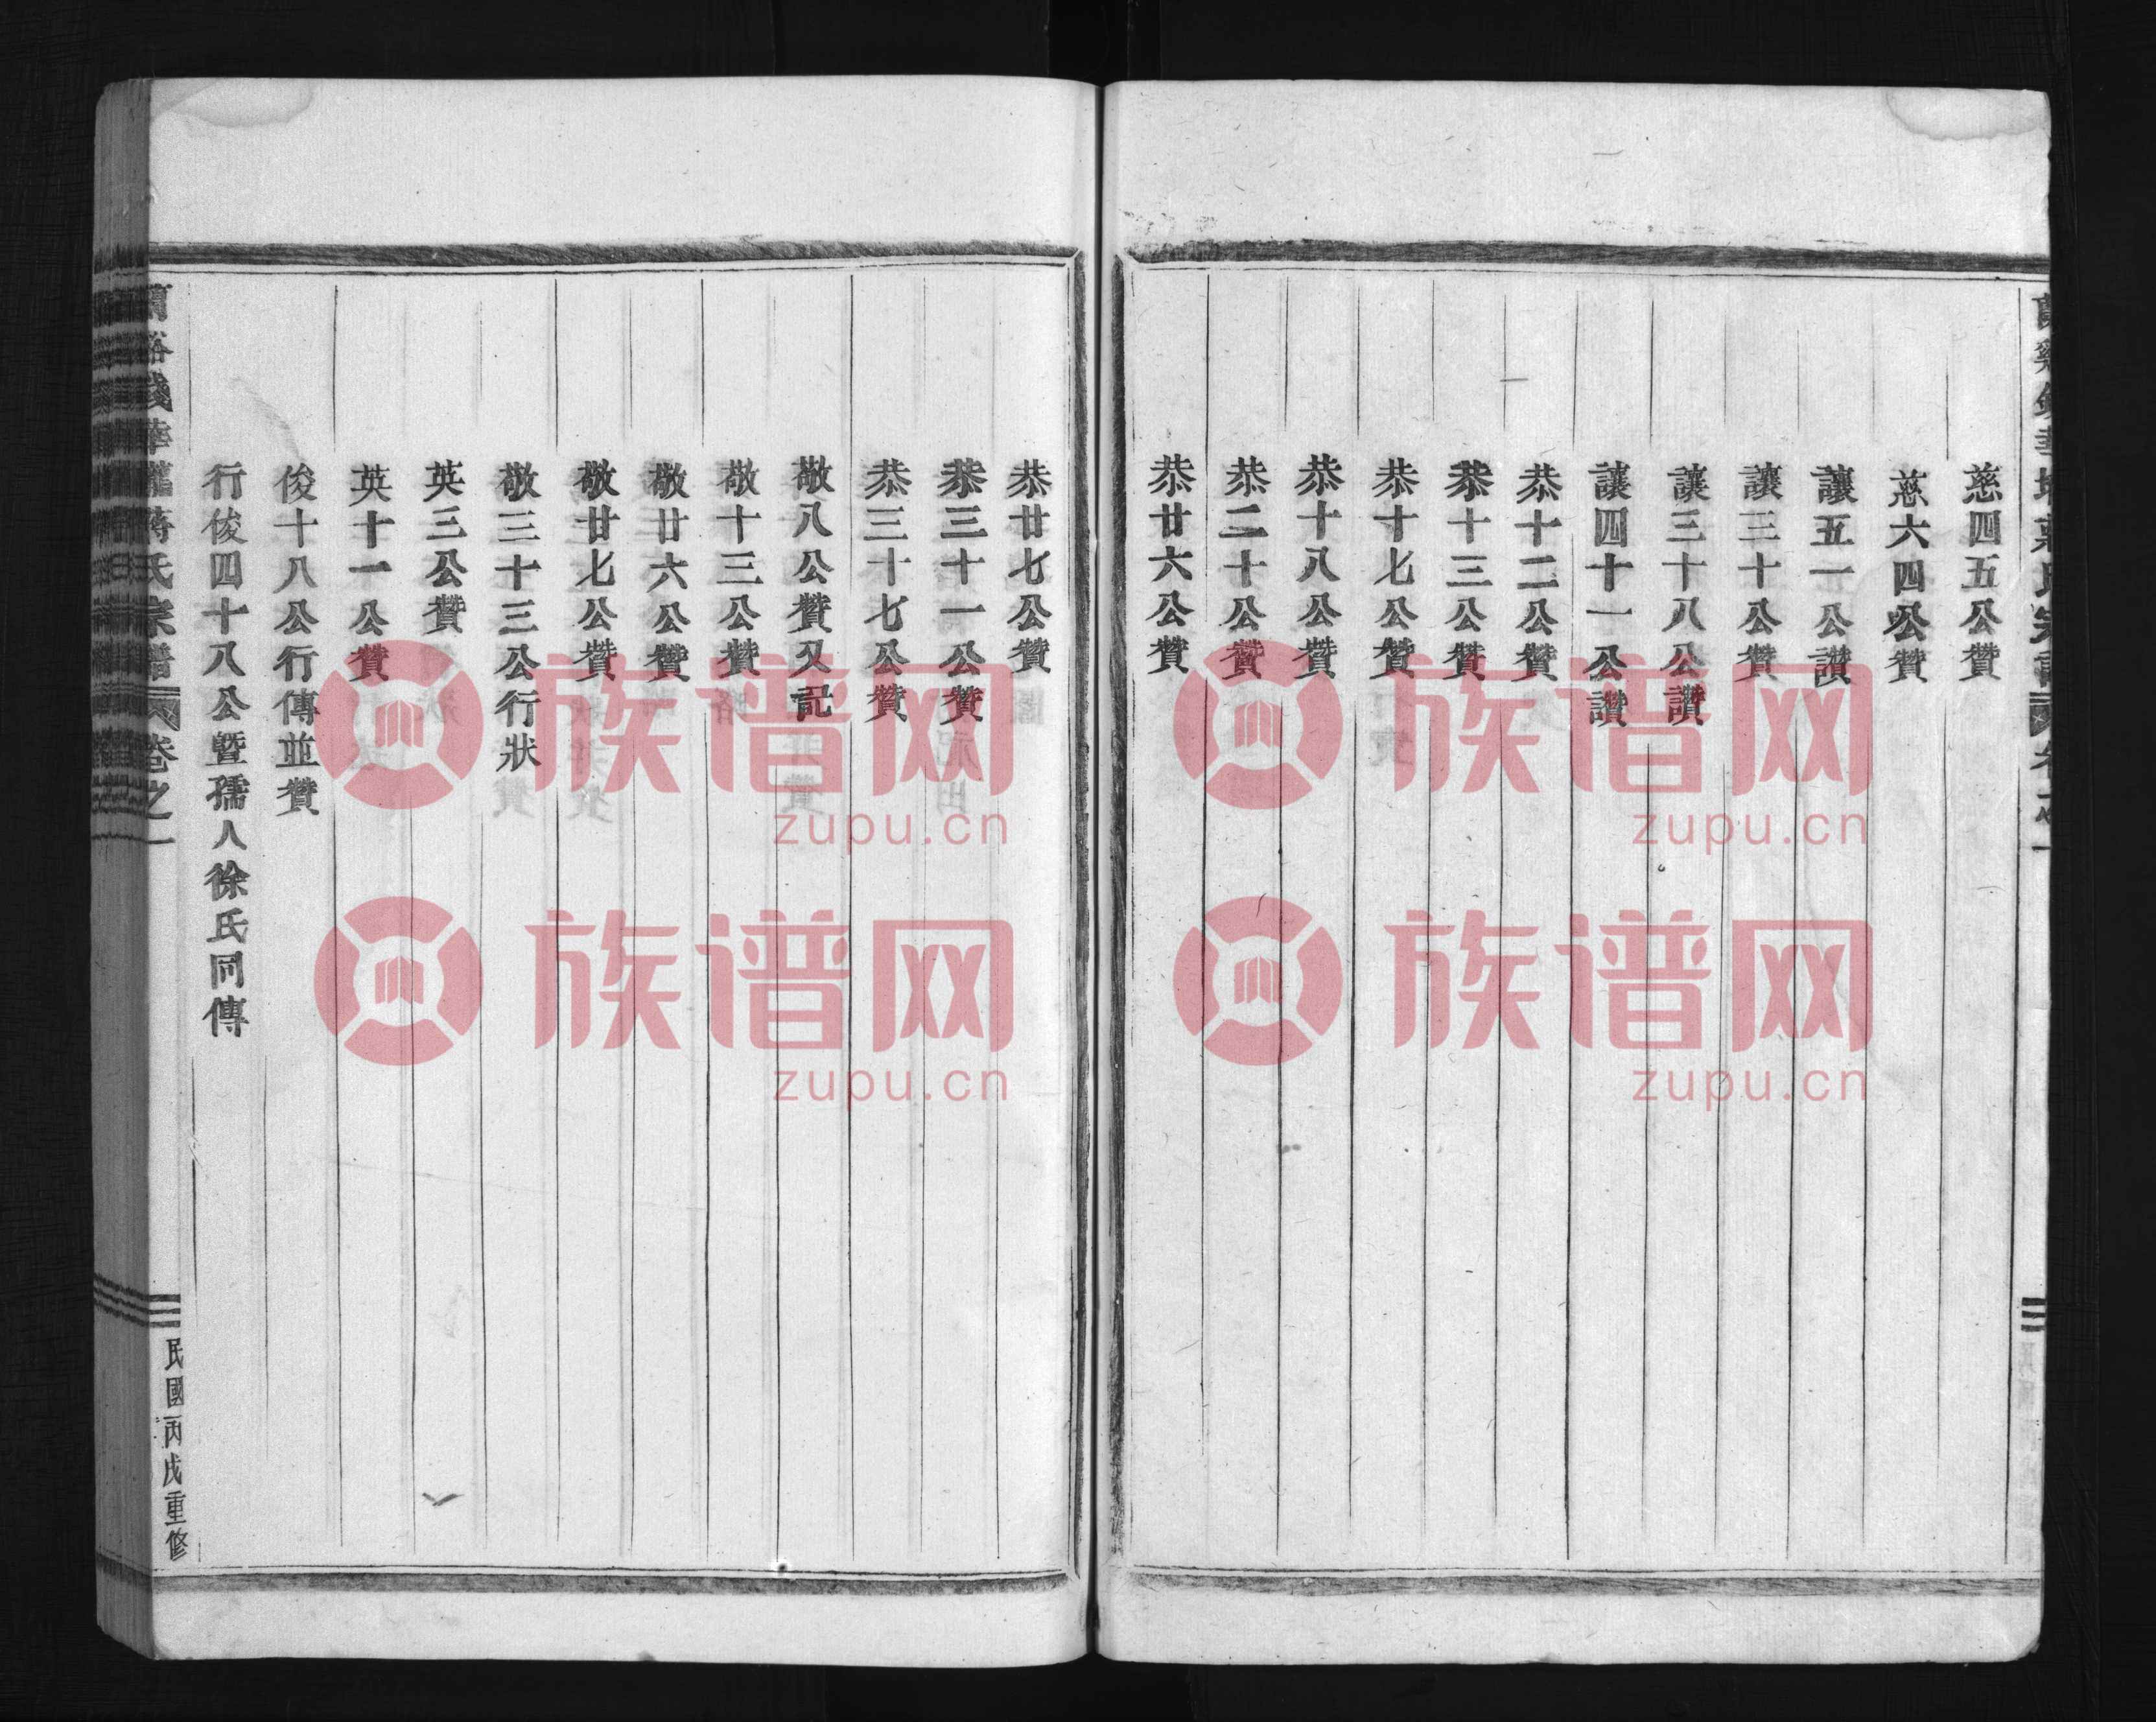 慈四五公贊
慈六四公贊
讓五一公讃
讓三十公贊
讓三十八公讃
讓四十一公讃
恭十二公贊
恭十三公贊
恭十七公贊
恭十八公贊
恭二十公贊
恭廿六公贊
恭廿七公贊
恭三十一公贊
恭三十七公贊
敬八公贊又記
敬十三公贊
敬廿六公贊
敬廿七公贊
敬三十三公行狀
英三公贊
英十一公贊
俊十八公行傳並贊
行俊四十八公暨孺人徐氏同傳
蔣氏宗譜 卷之一
民國丙戌重修
族谱网
zupu.cn
族谱网
zupu.cn
族谱网
zupu.cn
族谱网
zupu.cn